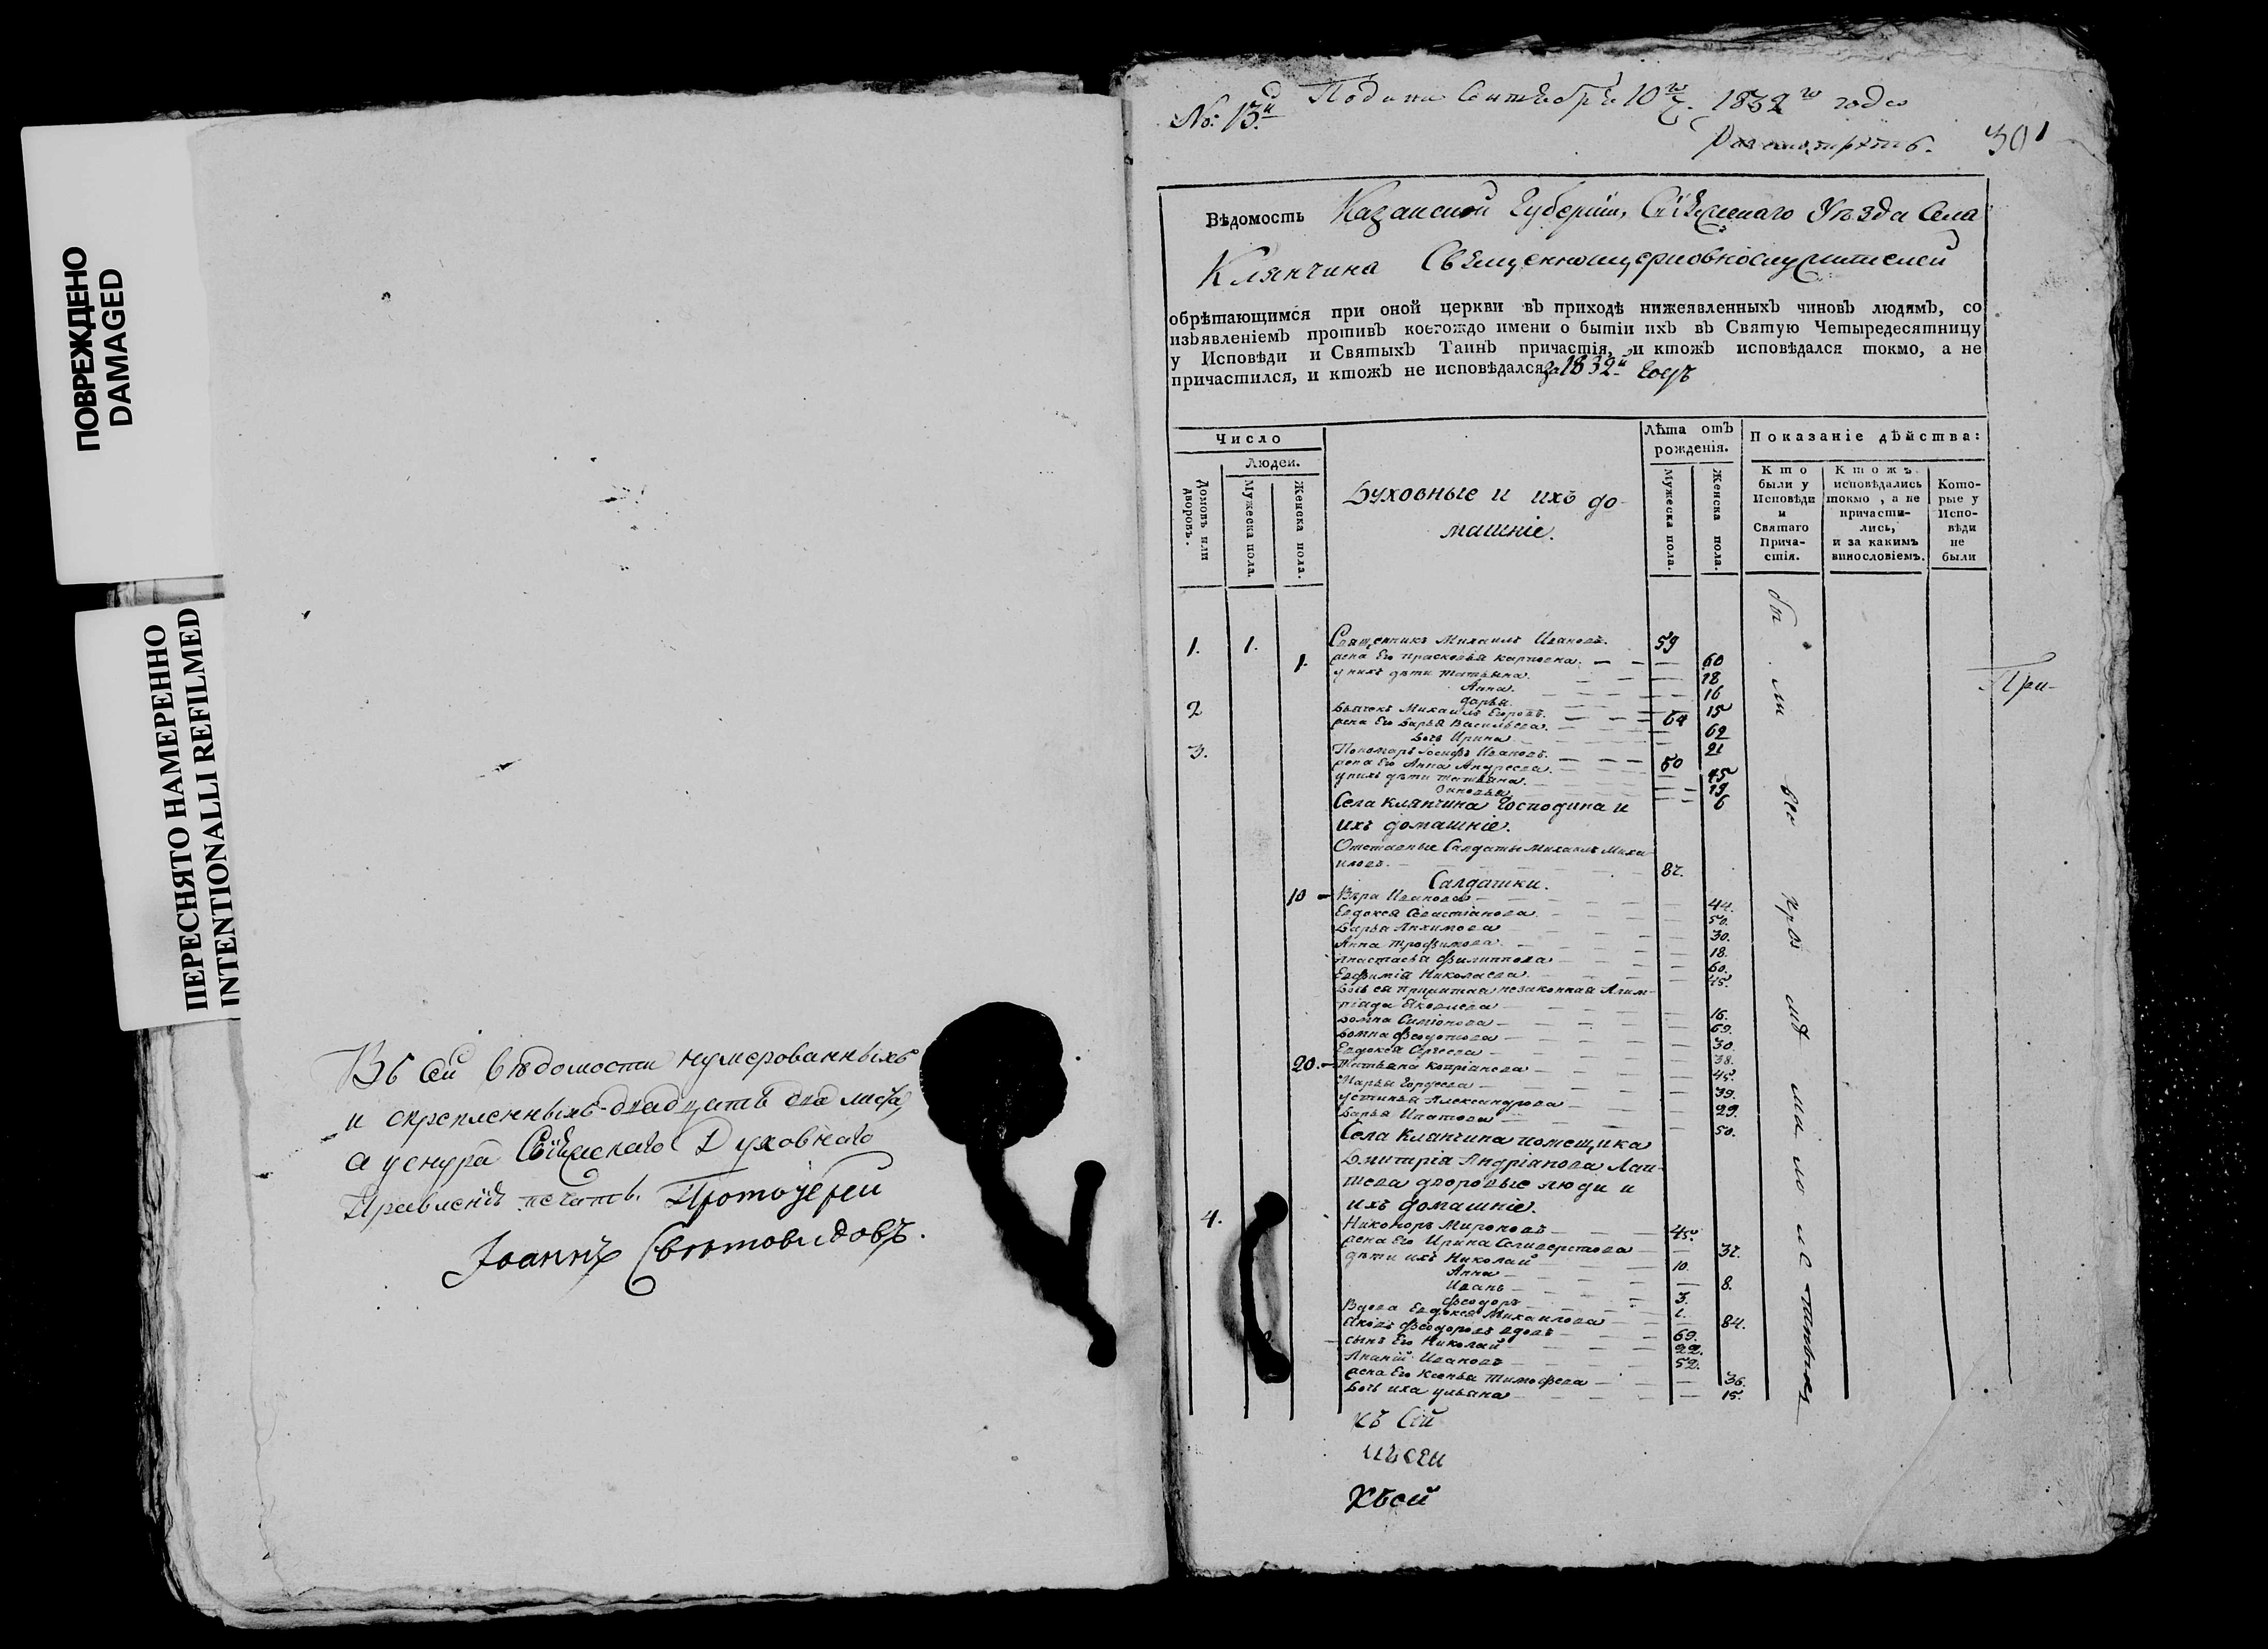 ПОВРЕЖДЕНО
DAMAGED
ПЕРЕСНЯТО НАМЕРЕННО
INTENTIONALLI REFILMED
Въ сей вѣдомости нумерованныхъ
и скрепленныхъ двадцать два листа,
а у снура Свіяжскаго Духовнаго
Правленія печать. Протоіерей
Іоаннъ Свѣтовидовъ.
№: 13й Подана Сентября 10го 1832го года
Разсмотрѣть. 301
Вѣдомость Казанской Губерніи, Свіяжскаго Уѣзда Села
Клянчина Священноцерковнослужителей
обрѣтающимся при оной церкви въ приходѣ нижеявленныхъ чиновъ людямъ, со
изъявленіемъ противъ коегождо имени о бытіи ихъ въ Святую Четыредесятницу
у Исповѣди и Святыхъ Таинъ причастія, и ктожъ исповѣдался токмо, а не
причастился, и ктожъ не исповѣдался за 1832й годъ
Число
Людей.
Домовъ или дворовъ.
Мужеска пола.
Женска пола.
Духовные и ихъ до-
машніе.
Лѣта отъ
рожденія.
Мужеска пола.
Женска пола.
Показаніе дѣйства:
Кто
были у
Исповѣди
и
Святаго
Прича-
стія.
Ктожъ
исповѣдались
токмо, а не
причасти-
лись,
и за какимъ
винословіемъ.
Кото-
рые у
Испо-
вѣди
не
были
1. 1. Священникъ Михаилъ Ивановъ. 59
1. жена Его Прасковья Карповна. 60
у нихъ дѣти Татьяна. 18
Анна. 16
Дарья. 15
2 Дьячекъ Михаилъ Егоровъ. 64
жена Его Дарья Васильева. 62
Дочь Ирина 21
3. Пономарь Іосифъ Ивановъ. 50
жена Его Анна Андреева. 45
у нихъ дѣти Татьяна. 19
6
Села Клянчина Господина и
ихъ домашніе.
Отставные Салдаты Михаилъ Миха
иловъ. 82.
Салдатки.
10 Вѣра Иванова 44.
Евдокея Севастіанова 50.
Дарья Анхимова 30.
Анна Трофимова 18.
Анастасья Филиппова 60.
Евфимія Николаева 45.
Дочь ея прижитая незаконная Алим-
піада Яковлева 16.
Домна Симіонова 69.
Домна Феодотова 30.
Евдокея Сергеева 38.
20. Татьяна Копріянова 45.
Марья Гордеева 39.
Устинья Александрова 29.
Дарья Ипатова 50.
Села Клянчина помещика
Дмитрія Андріанова Лап-
тева дворовые люди и
ихъ домашніе.
4. Никоноръ Мироновъ 45.
жена Его Ирина Селиверстова 32.
дѣти ихъ Николай 10.
Анна 8.
Иванъ 3.
Феодоръ 1.
Вдова Евдокея Михаилова 84.
Яковъ Феодоровъ вдовъ 69.
сынъ Его Николай 22.
Ананій Ивановъ 52.
жена Его Ксенья Тимофеева 36.
Дочь ихъ Ульяна 15.
При-
къ Сей
къ сей